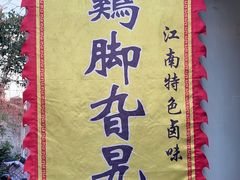 江南特色卤味
鷄脚旮旯